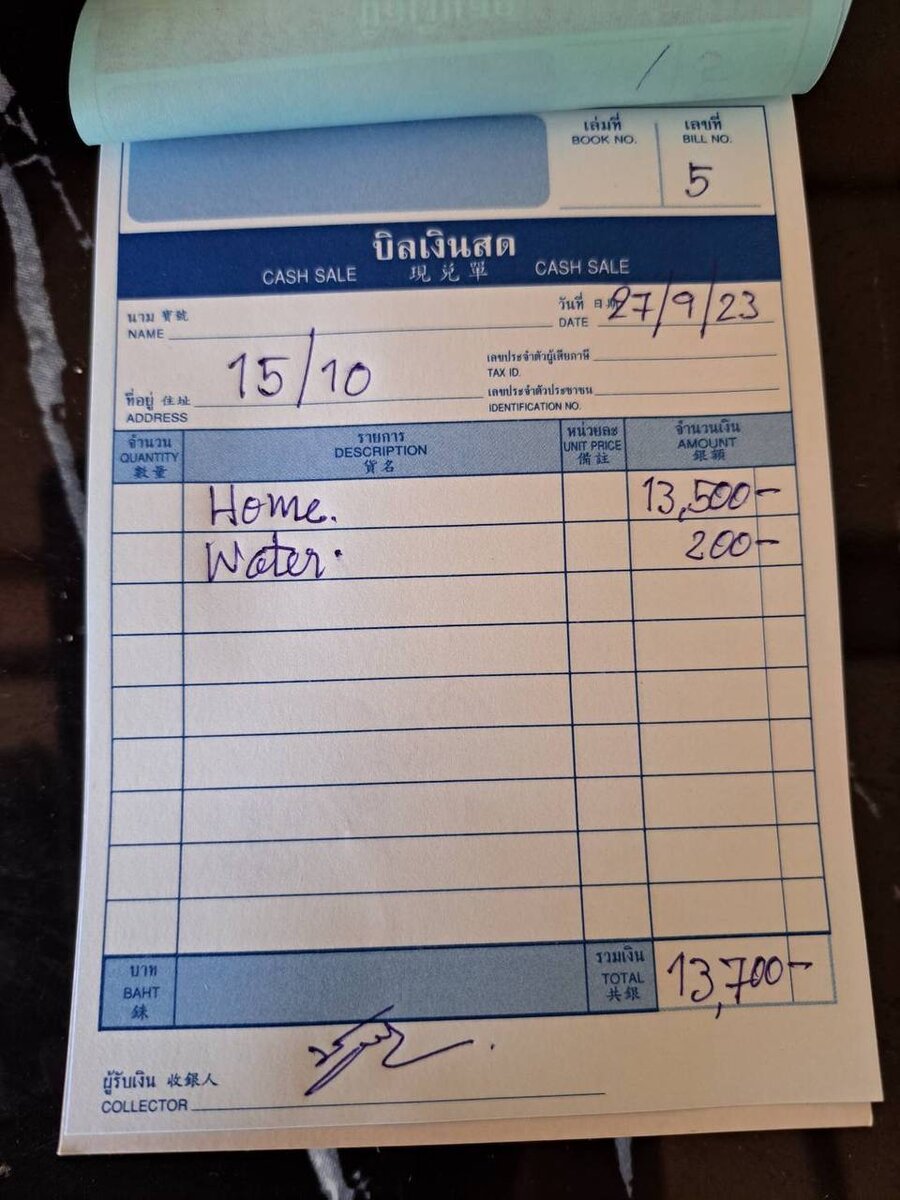 เล่มที่ เลขที่
BOOK NO. BILL NO.
5
บิลเงินสด
CASH SALE 現兌單 CASH SALE
นาม 寶號 วันที่ 日期 27/9/23
NAME DATE
15/10 เลขประจำตัวผู้เสียภาษี
TAX ID.
ที่อยู่ 住址 เลขประจำตัวประชาชน
ADDRESS IDENTIFICATION NO.
จำนวน รายการ หน่วยละ จำนวนเงิน
QUANTITY DESCRIPTION UNIT PRICE AMOUNT
數量 貨名 備註 銀額
Home. 13,500-
Water. 200-
บาท รวมเงิน
BAHT TOTAL 13,700-
銖 共銀
ผู้รับเงิน 收銀人
COLLECTOR